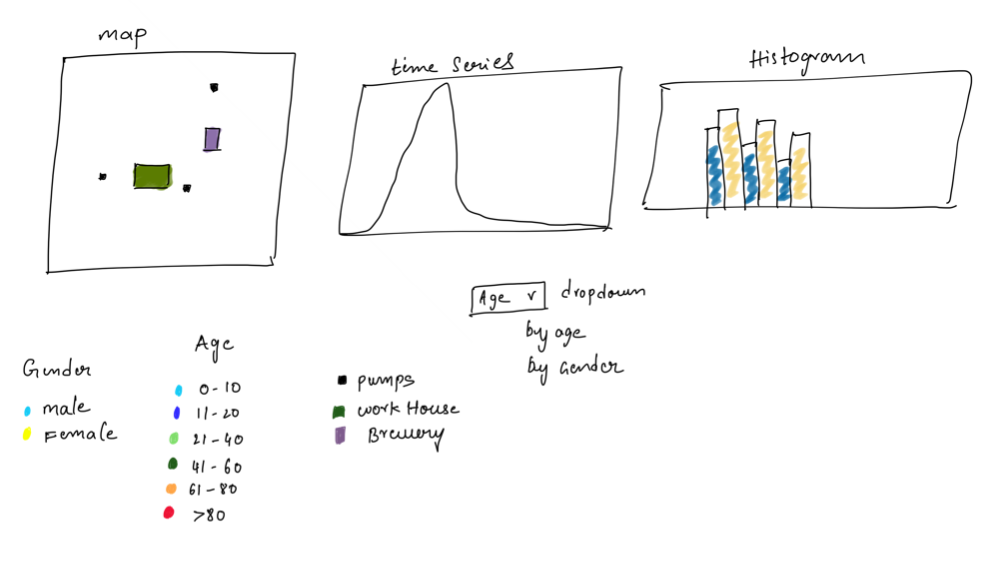 map
time Series
Histogram
Age v dropdown
by age
by Gender
Gender
male
Female
Age
0-10
11-20
21-40
41-60
61-80
>80
pumps
work House
Brewery